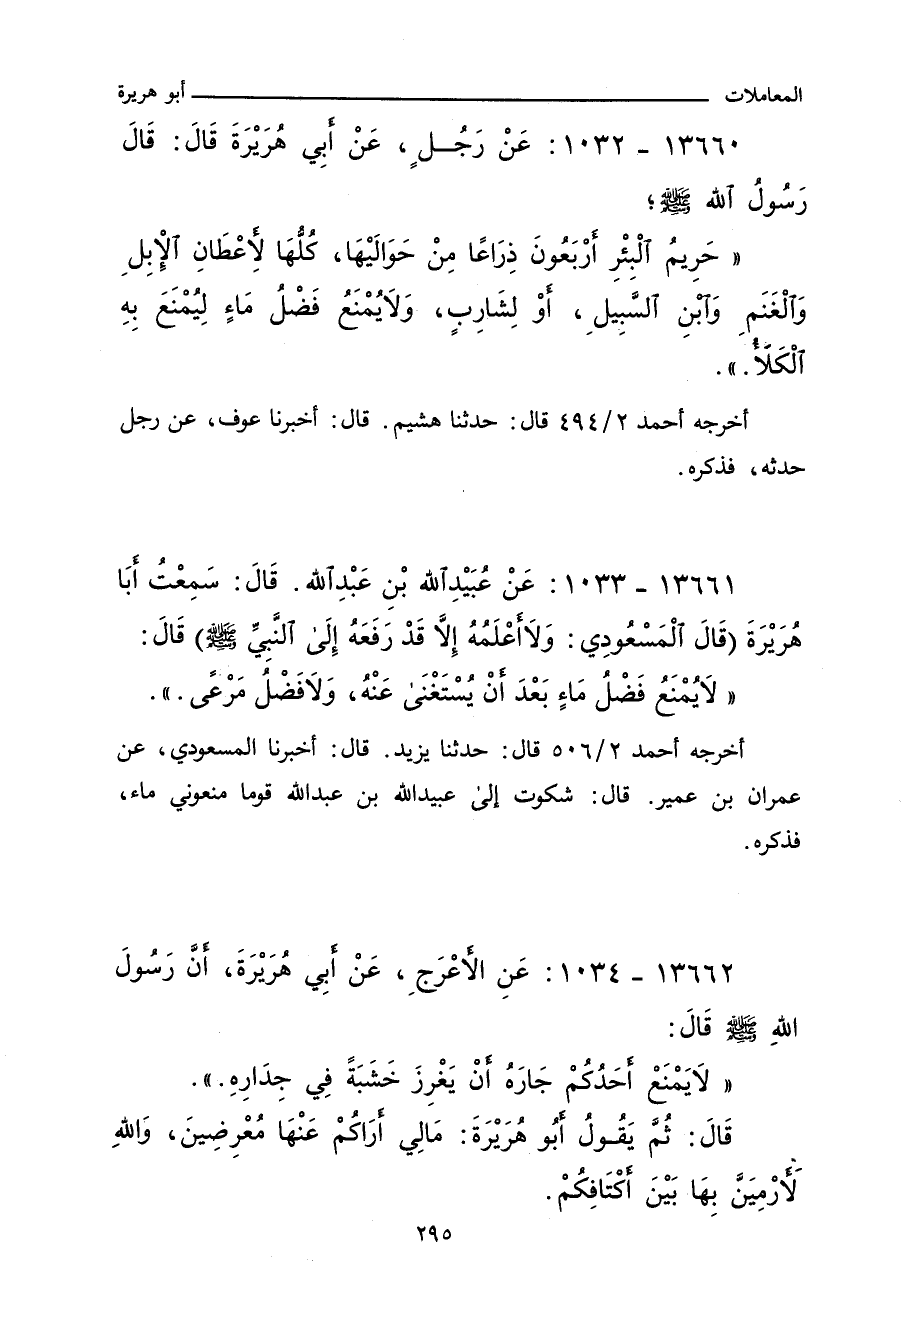 المعاملات ــــــــــــــــ أبو هريرة
١٣٦٦٠ ـ ١٠٣٢: عَنْ رَجُـلٍ، عَنْ أَبِي هُرَيْرَةَ قَالَ: قَالَ
رَسُولُ ٱلله ﷺ؛
« حَرِيمُ ٱلْبِئْرِ أَرْبَعُونَ ذِرَاعًا مِنْ حَوَالَيْهَا، كُلُّهَا لِأَعْطَانِ ٱلْإِبِلِ
وَٱلْغَنَمِ وَٱبْنِ ٱلسَّبِيلِ، أَوْ لِشَارِبٍ، وَلَايُمْنَعُ فَضْلُ مَاءٍ لِيُمْنَعَ بِهِ
ٱلْكَلَأُ.».
أخرجه أحمد ٤٩٤/٢ قال: حدثنا هشيم. قال: أخبرنا عوف، عن رجل
حدثه، فذكره.
١٣٦٦١ ـ ١٠٣٣: عَنْ عُبَيْدِٱلله بْنِ عَبْدِٱلله. قَالَ: سَمِعْتُ أَبَا
هُرَيْرَةَ (قَالَ ٱلْمَسْعُودِي: وَلَاأَعْلَمُهُ إِلَّا قَدْ رَفَعَهُ إِلَىٰ ٱلنَّبِيِّ ﷺ) قَالَ:
« لَايُمْنَعُ فَضْلُ مَاءٍ بَعْدَ أَنْ يُسْتَغْنَىٰ عَنْهُ، وَلَافَضْلُ مَرْعًى.».
أخرجه أحمد ٥٠٦/٢ قال: حدثنا يزيد. قال: أخبرنا المسعودي، عن
عمران بن عمير. قال: شكوت إلىٰ عبيدالله بن عبدالله قوما منعوني ماء،
فذكره.
١٣٦٦٢ ـ ١٠٣٤: عَنِ الْأَعْرَجِ، عَنْ أَبِي هُرَيْرَةَ، أَنَّ رَسُولَ
اللهِ ﷺ قَالَ:
« لَايَمْنَعْ أَحَدُكُمْ جَارَهُ أَنْ يَغْرِزَ خَشَبَةً فِي جِدَارِهِ.».
قَالَ: ثُمَّ يَقُـولُ أَبُو هُرَيْرَةَ: مَالِي أَرَاكُمْ عَنْهَا مُعْرِضِينَ، وَاللهِ
لَأَرْمِيَنَّ بِهَا بَيْنَ أَكْتَافِكُمْ.
٢٩٥